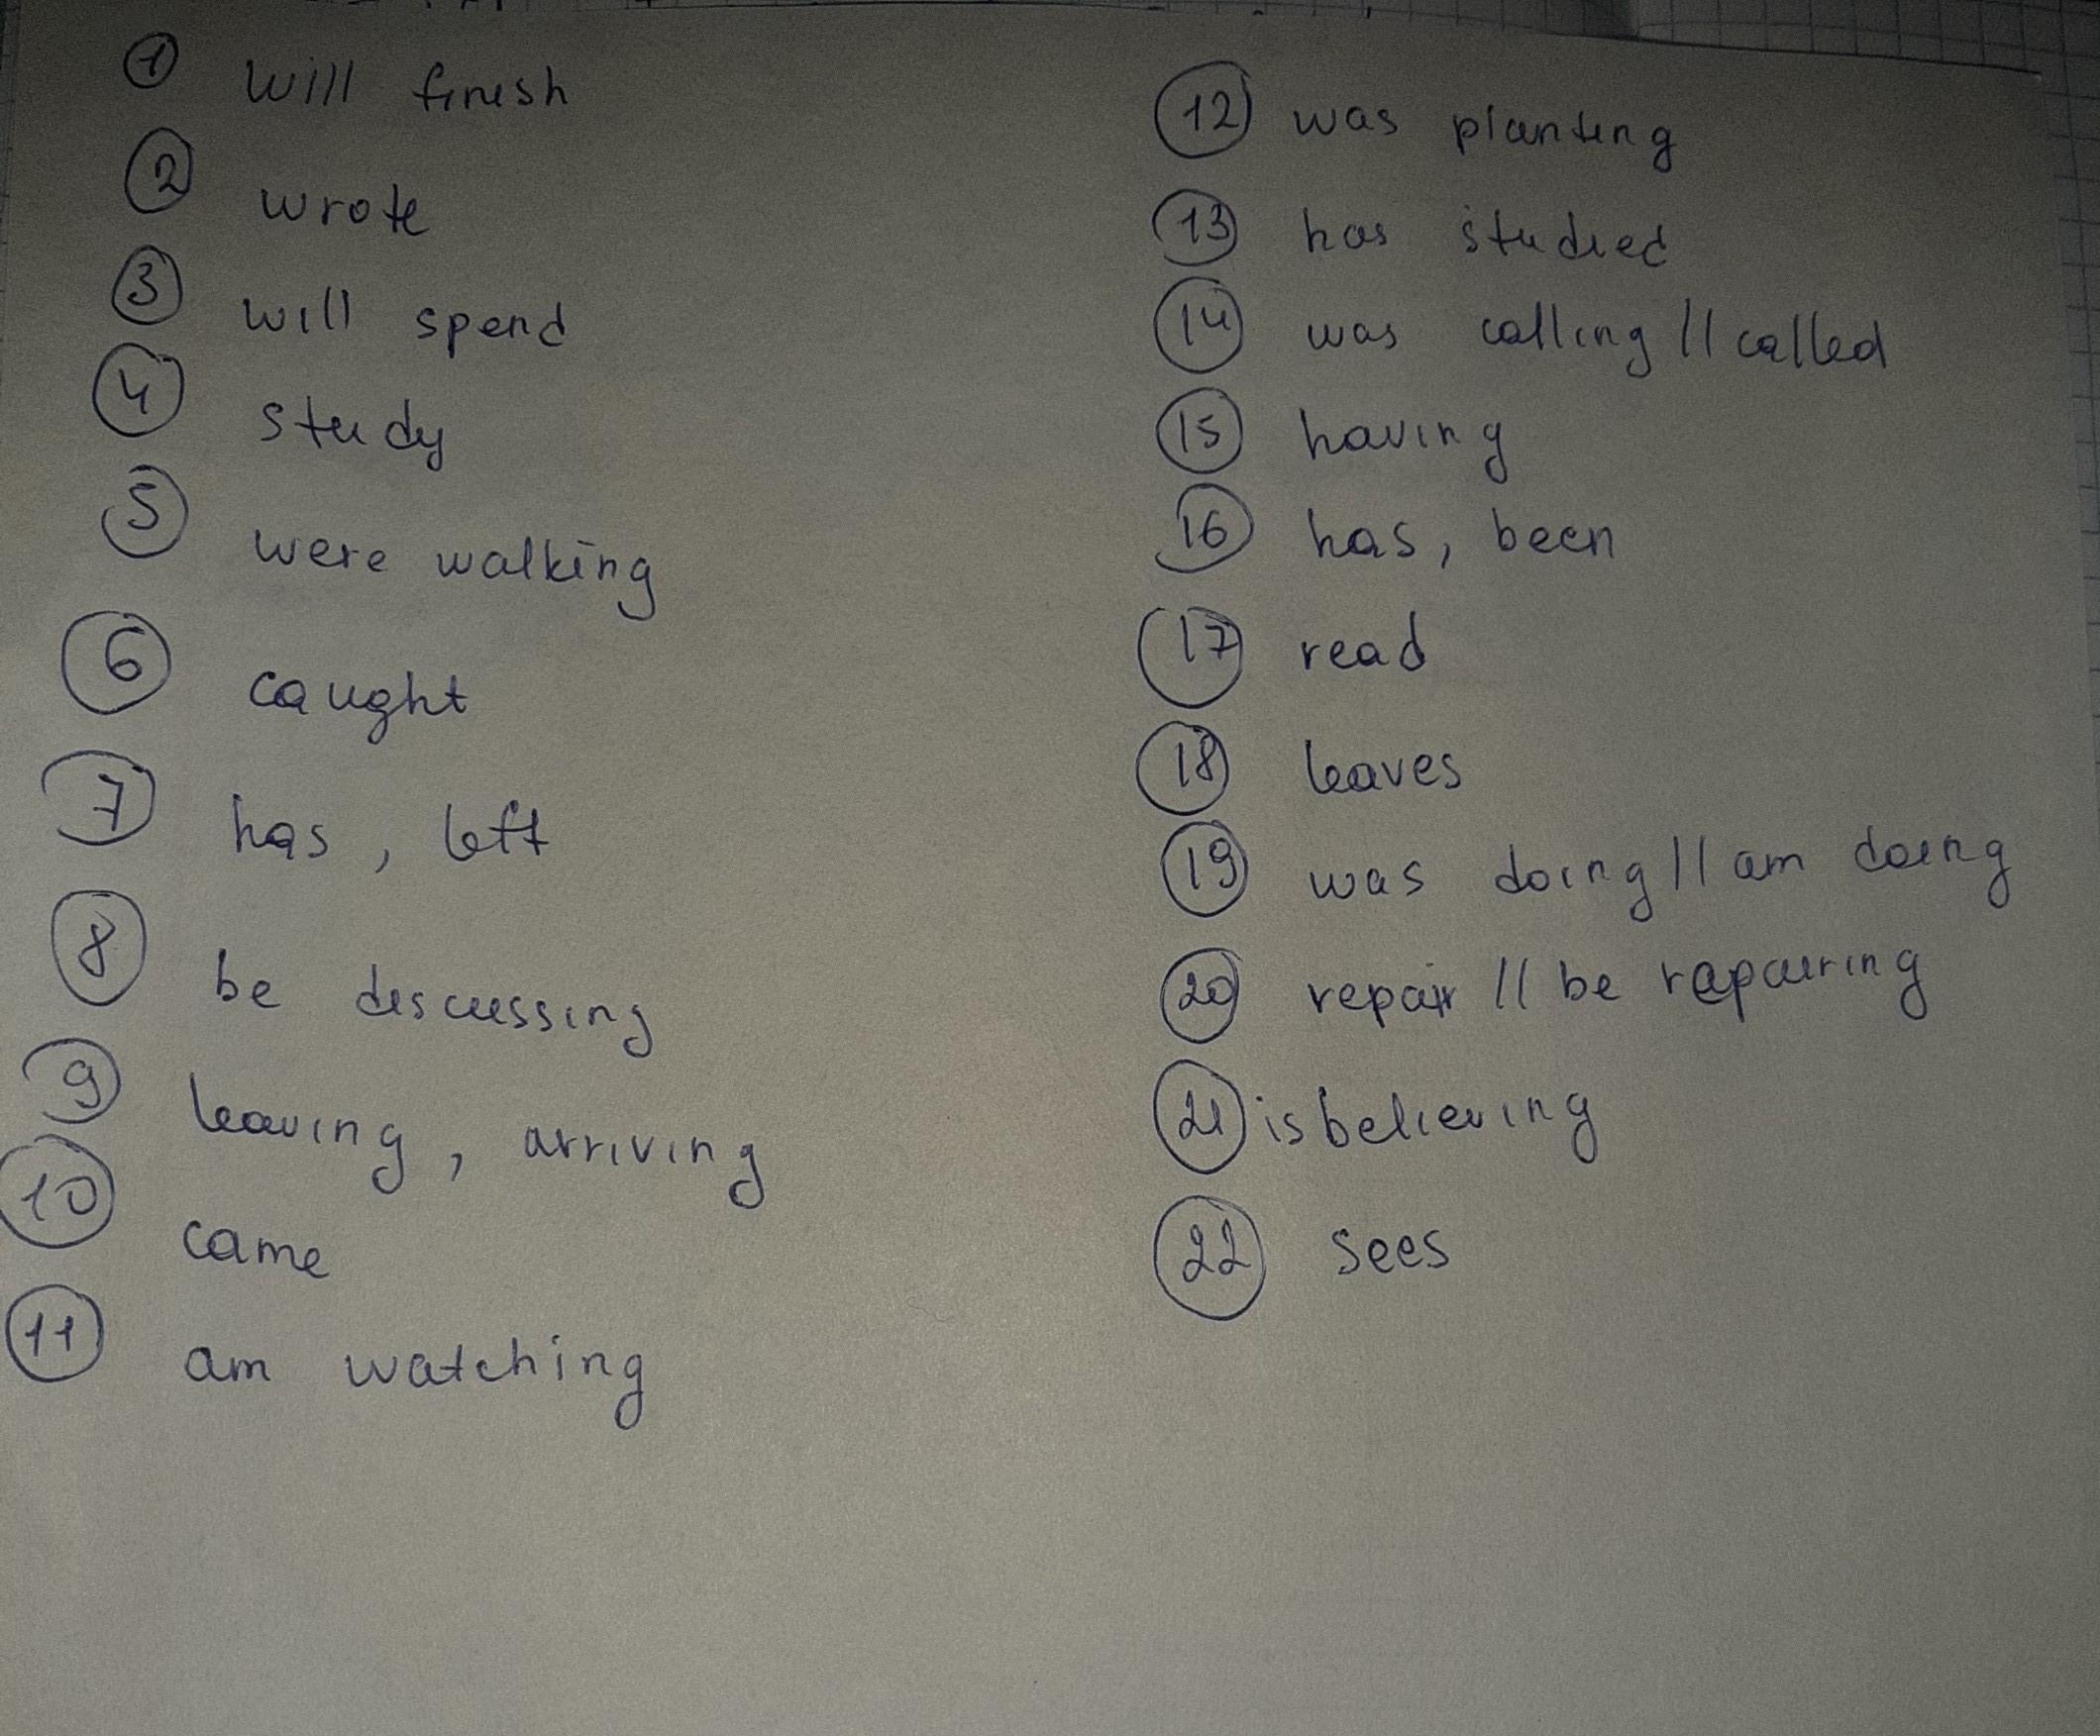 1 will finish
2 wrote
3 will spend
4 study
5 were walking
6 caught
7 has, left
8 be discussing
9 leaving, arriving
10 came
11 am watching
12 was planting
13 has studied
14 was calling // called
15 having
16 has, been
17 read
18 leaves
19 was doing // am doing
20 repair // be rapairing
21 is believing
22 sees